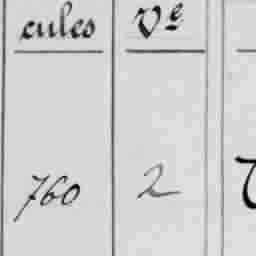 cules Vᵉ
760 2